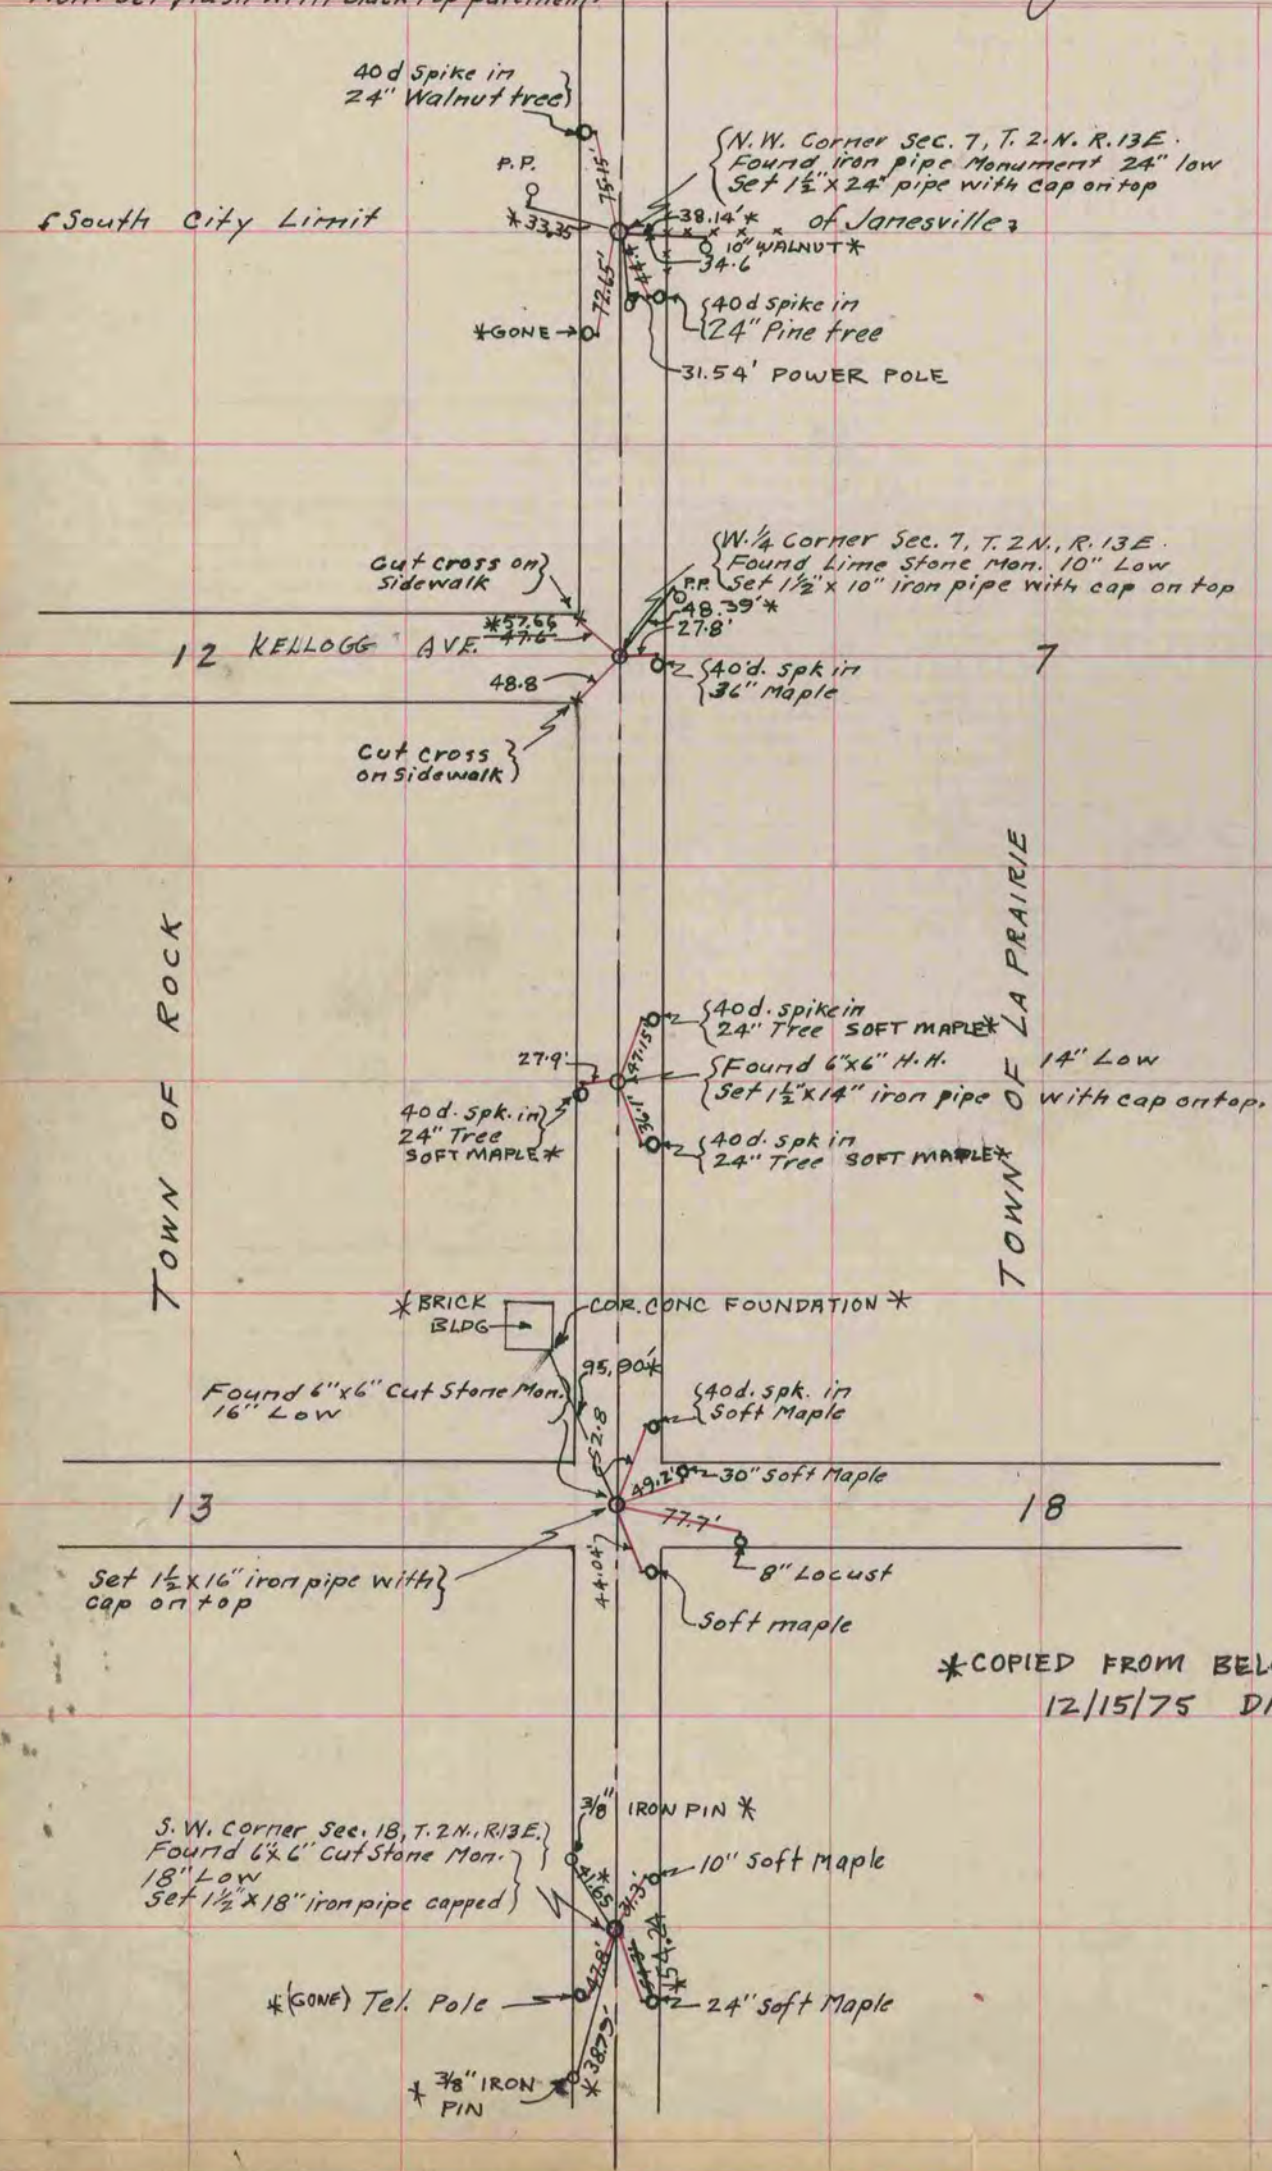 40d Spike in
24" Walnut tree
P.P.
75.15'
N.W. Corner Sec. 7, T. 2.N. R.13E.
Found iron pipe Monument 24" low
Set 1½" x 24" pipe with cap on top
South City Limit
of Janesville
*33.35
38.14'*
10" WALNUT*
34.6
72.65'
*GONE
40d spike in
24" Pine tree
31.54' POWER POLE
W.¼ Corner Sec. 7, T. 2N., R. 13E.
Found Lime Stone Mon. 10" Low
Set 1½" x 10" iron pipe with cap on top
P.P.
48.39'*
27.8'
Cut cross on
Sidewalk
*57.66
47.6
12 KELLOGG AVE.
7
40'd. spk in
36" Maple
48.8
Cut cross
on Sidewalk
TOWN OF ROCK
TOWN OF LA PRAIRIE
40d. spike in
24" Tree SOFT MAPLE*
47.15'
27.9'
Found 6"x6" H.H. 14" Low
Set 1½"x14" iron pipe with cap on top.
40d. spk. in
24" Tree
SOFT MAPLE*
36.1'
40d. spk in
24" Tree SOFT MAPLE*
*BRICK
BLDG
COR. CONC FOUNDATION *
95.90*
Found 6"x6" Cut Stone Mon.
16" Low
40d. spk. in
Soft Maple
52.8
49.2'
30" Soft Maple
13
18
77.7'
44.04'
8" Locust
Set 1½ x 16" iron pipe with
cap on top
Soft maple
*COPIED FROM
12/15/75
3/8" IRON PIN *
S. W. Corner Sec. 18, T. 2N., R.13E.
Found 6"x6" Cut Stone Mon.
18" Low
Set 1½" x 18" iron pipe capped
41.65*
31.3'
10" Soft Maple
47.8'
*54.24
*(GONE) Tel. Pole
24" Soft Maple
*38.79'
* 3/8" IRON
PIN